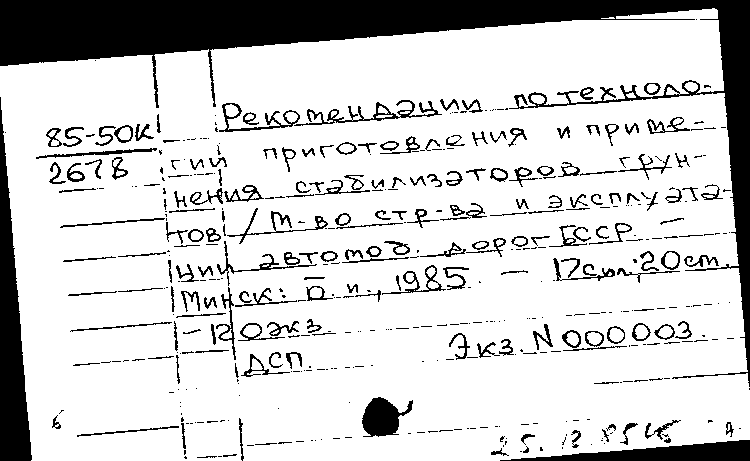 85-50К
2678
Рекомендации по техноло-
гии приготовления и приме-
нения стабилизаторов грун-
тов / М-во стр-ва и эксплуата-
ции автомоб. дорог БССР. –
Минск: Б. и., 1985. – 17с., ил.; 20см.
– 120экз.
ДСП. Экз. N 000003.
Б
25.12.85